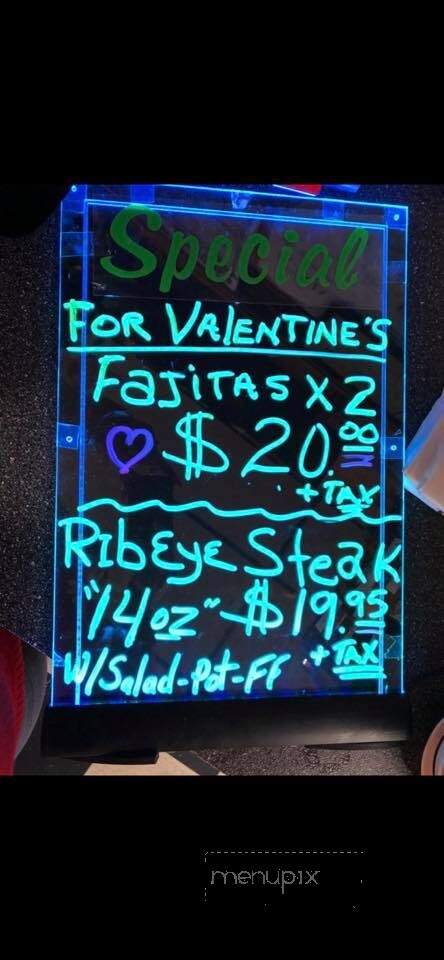 Special
FOR VALENTINE'S
FAJITAS X 2
$20.00
+ TAX
RIBEYE Steak
"14oz" $19.95
+ TAX
W/Salad-Pot-FF
menupix